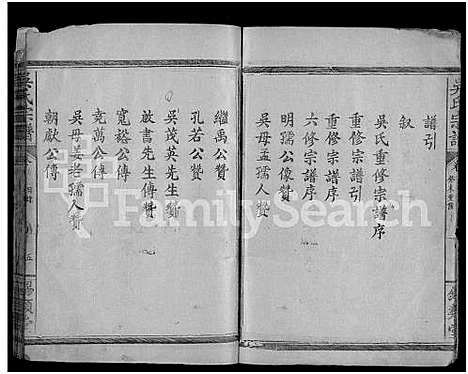 吳氏宗譜
譜引
敘
吳氏重修宗譜序
重修宗譜引
重修宗譜序
六修宗譜序
明孺公像贊
吳母孟孺人贊
繼禹公贊
孔若公贊
吳茂英先生贊
放書先生傳贊
寬裕公傳
竞萬公傳
吳母姜老孺人贊
朝獻公傳
吳氏宗譜
FamilySearch